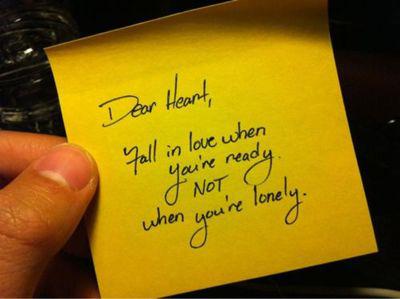 Dear Heart,
Fall in love when
you're ready.
NOT
when you're lonely.